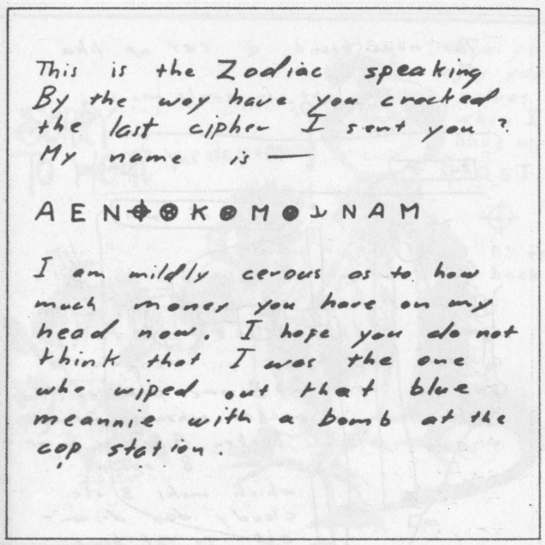 This is the Zodiac speaking
By the way have you cracked
the last cipher I sent you ?
My name is —
A E N ⌖ ⑧ K ⑧ M ⑧ ⅃ N A M
I am mildly cerous as to how
much money you have on my
head now. I hope you do not
think that I was the one
who wiped out that blue
meannie with a bomb at the
cop station.